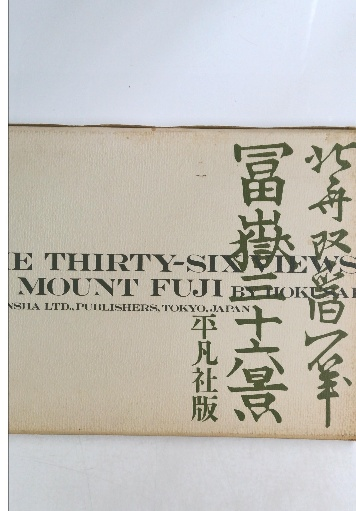 北斎改為一筆
冨嶽三十六景
HE THIRTY-SIX VIEWS
MOUNT FUJI BY HOKUSAI
NSHA LTD., PUBLISHERS, TOKYO, JAPAN
平凡社版